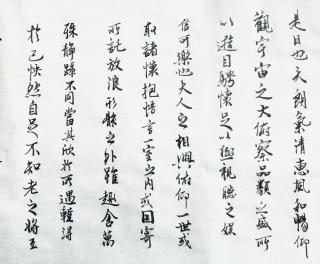 是日也天朗氣清惠風和暢仰
觀宇宙之大俯察品類之盛所
以遊目騁懷足以極視聽之娛
信可樂也夫人之相與俯仰一世或
取諸懷抱悟言一室之內或因寄
所託放浪形骸之外雖趣舍萬
殊靜躁不同當其欣於所遇輕得
於己怏然自足不知老之將至